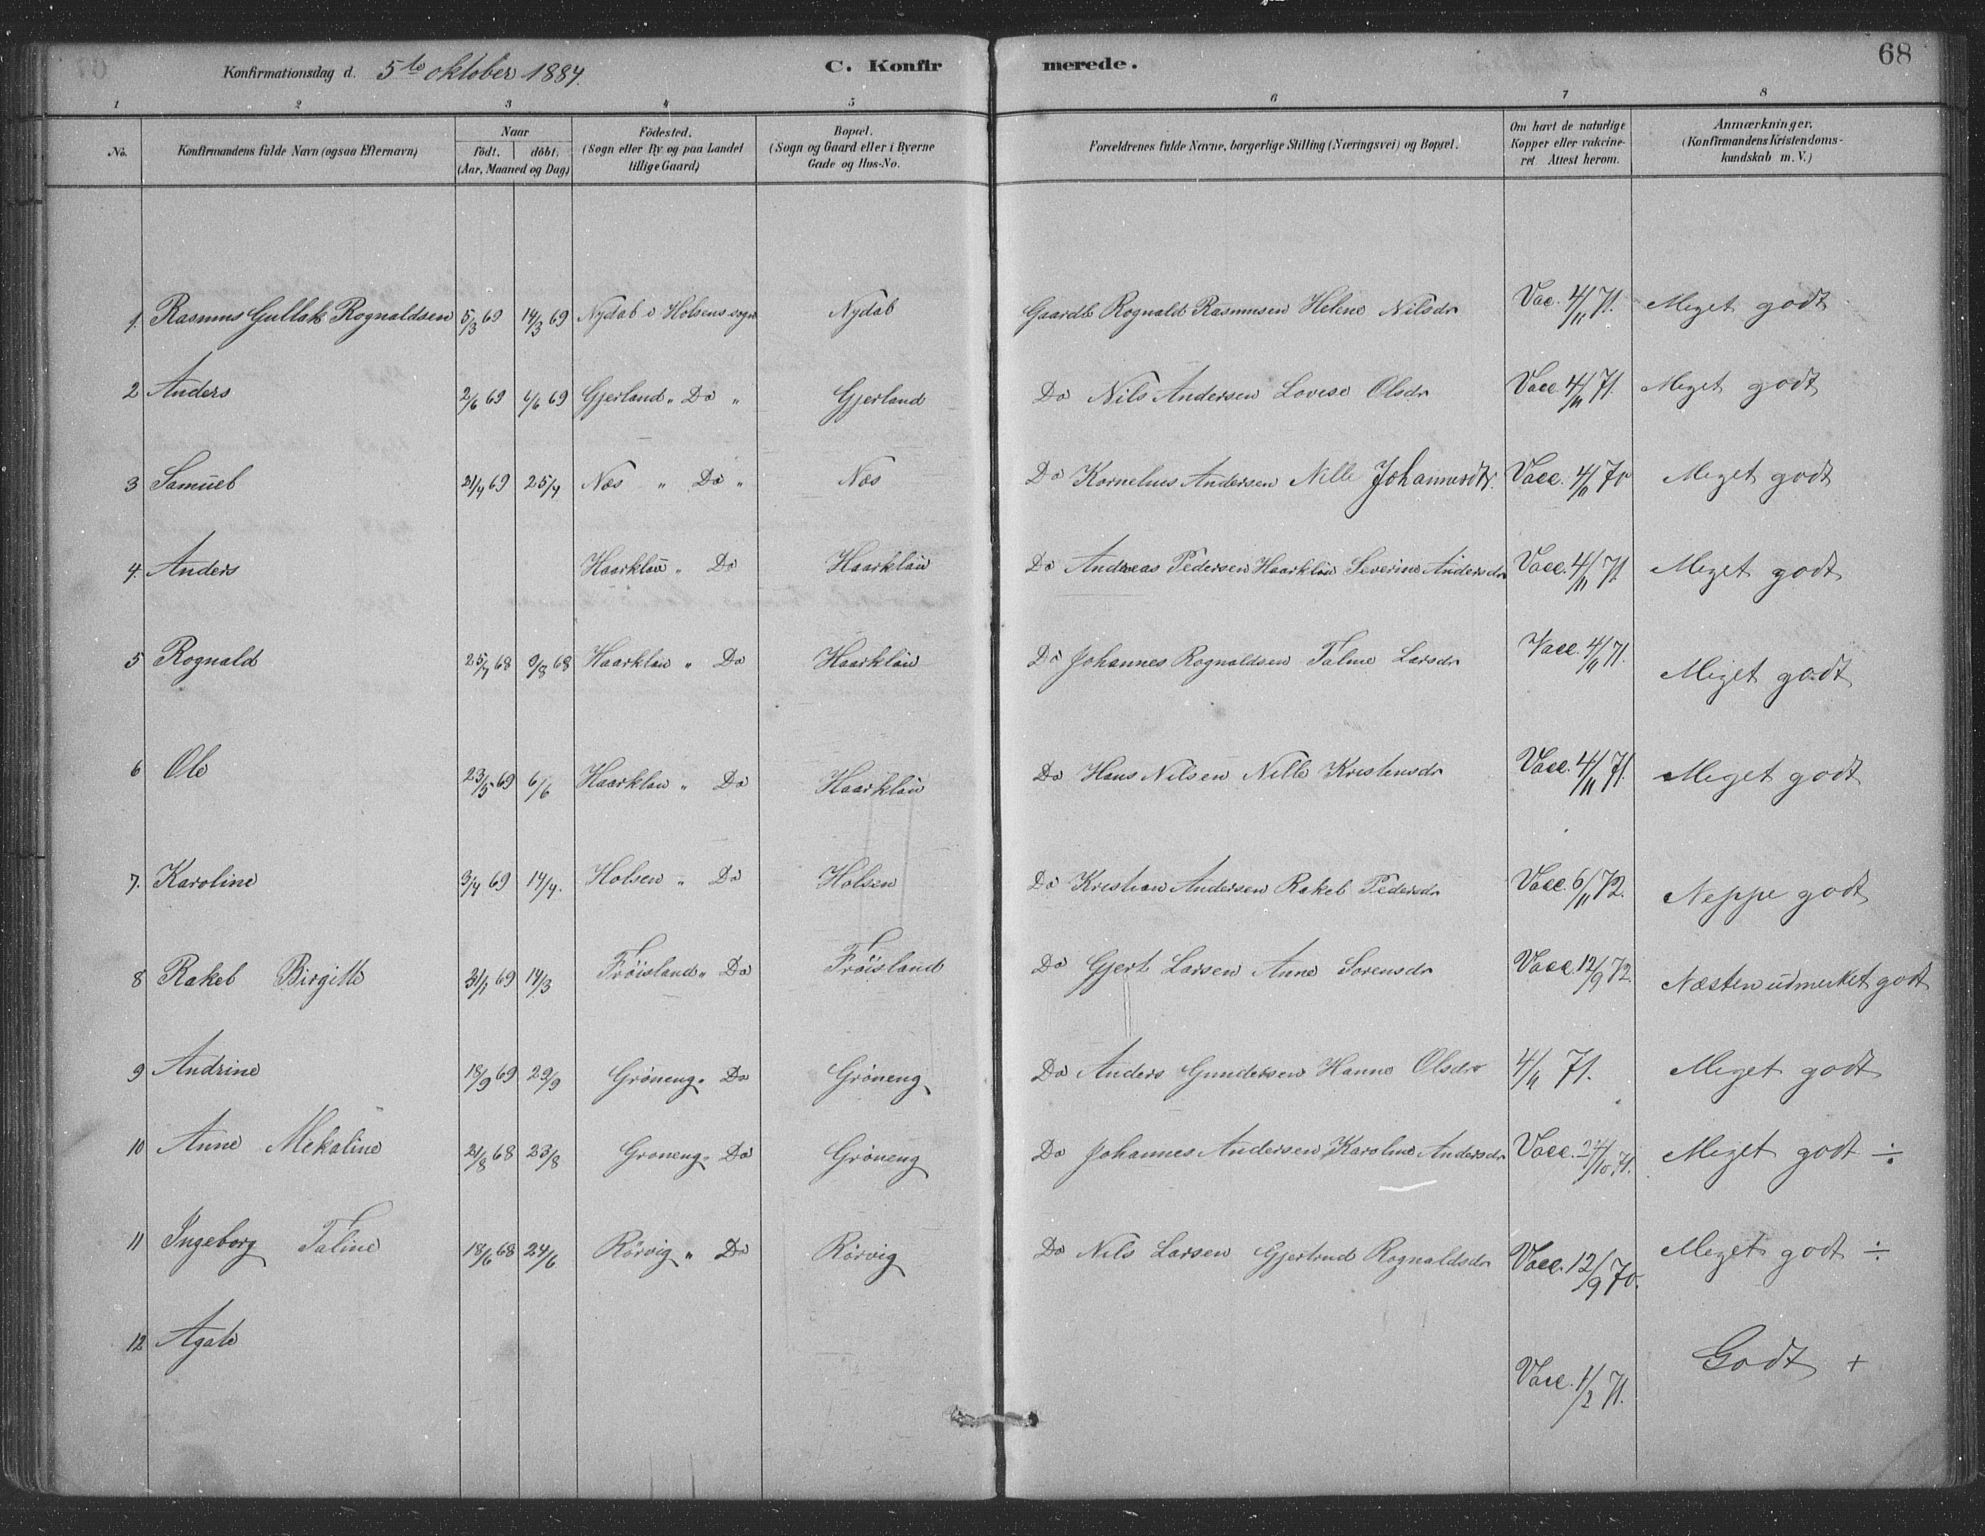 68
Konfirmationsdag d. 5te oktober 1884.
C. Konfir merede.
1 2 3 4 5 6 7 8
No.
Konfirmandens fulde Navn (ogsaa Efternavn)
Naar
födt. döbt.
(Aar, Maaned og Dag)
Födested.
(Sogn eller By og paa Landet
tillige Gaard)
Bopæl.
(Sogn og Gaard eller i Byerne
Gade og Hus-No.
Forældrenes fulde Navne, borgerlige Stilling (Næringsvei) og Bopæl.
Om havt de naturlige
Kopper eller vakcine-
ret. Attest herom.
Anmærkninger.
(Konfirmandens Kristendoms-
kundskab m. V.)
1. Rasmus Gullak Rognaldsen 5/3 69 14/3 69 Nydal i Holsens sogn Nydal Gaardb Rognald Rasmusen Helene Nilsdr Vac. 4/11 71. Meget godt
2 Anders 2/6 69 6/6 69 Gjerland " Do " Gjerland Do Nils Andersen Lovise Olsdr Vacc. 4/11 71. Meget godt
3 Samuel 21/4 69 25/4 Næs " Do " Næs Do Kornelius Andersen Nille Johannesdtr. Vacc. 4/11 70 Meget godt
4. Anders Haarklau " Do Haarklau Do Andreas Pedersen Haarklau Severine Andersdr Vacc. 4/11 71 Meget godt
5 Rognald 25/7 68 9/8 68 Haarklau " Do Haarklau Do Johannes Rognaldsen Taline Larsdr Vacc. 4/11 71. Meget godt
6 Ole 23/5 69 6/6 Haarklau " Do Haarklau Do Hans Nilsen Nille Kristensdr Vacc. 4/11 71. Meget godt
7. Karoline 3/4 69 14/4. Holsen " Do Holsen Do Kristian Andersen Rakel Pedersdr Vacc. 6/11 72. Neppe godt
8 Rakel Birgitte 31/1 69 14/3 Fröisland " Do Fröisland Do Gjert Larsen Anne Sorensdr Vacc. 12/9 72. Næsten udmerket godt
9 Andrine 18/9 69 29/9 Gröneng " Do Gröneng Do Anders Gundersen Hanne Olsdr 4/11 71. Meget godt
10 Anne Mekaline 21/8 68 23/8 Groneng " Do Gröneng Do Johannes Andersen Karoline Andersdr Vacc. 24/10 71. Meget godt ÷
11 Ingeborg Taline 18/6 68 24/6 Rörvig " Do Rörvig Do Nils Larsen Gjertrud Rognaldsdr Vacc. 12/9 70. Meget godt ÷
12 Agate Vacc. 1/2 71. Godt +